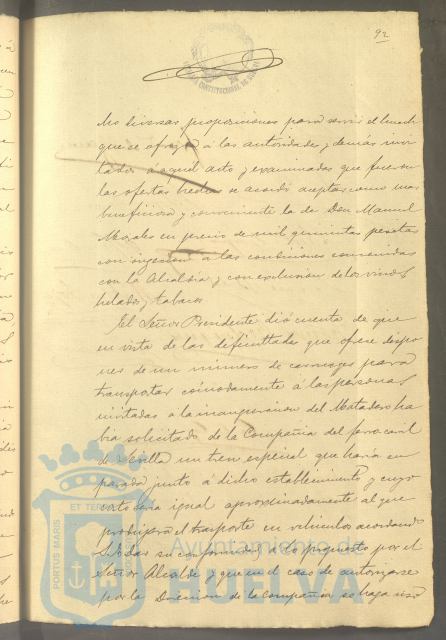 92
do diversas proposiciones para servir el lunch
que se ofrezca á las autoridades y demás invi-
tados á aquel acto y examinadas que fueron
las ofertas hechas se acordó aceptar como mas
beneficiosa y conveniente la de Don Manuel
Morales en precio de mil quinientas pesetas
con sujeción á las condiciones convenidas
con la Alcaldia y con exclusion de los vinos,
helados y tabacos
El Señor Presidente dió cuenta de que
en vista de las dificultades que ofrece dispo-
ner de un número de carruajes para
transportar cómodamente á las personas
invitadas á la inauguracion del Matadero ha
bia solicitado de la Compañia del ferro-carril
de Sevilla un tren especial que haria su
parada junto á dicho establecimiento y cuyo
costo seria igual aproximadamente al que
produjera el transporte en vehiculos acordando
el su conformidad á lo propuesto por el
Señor Alcalde y que en el caso de autorizarse
por la Direccion de la Compañia se haga uso
PORTUS MARIS
ET TERRAE
Ayuntamiento de
HUELVA